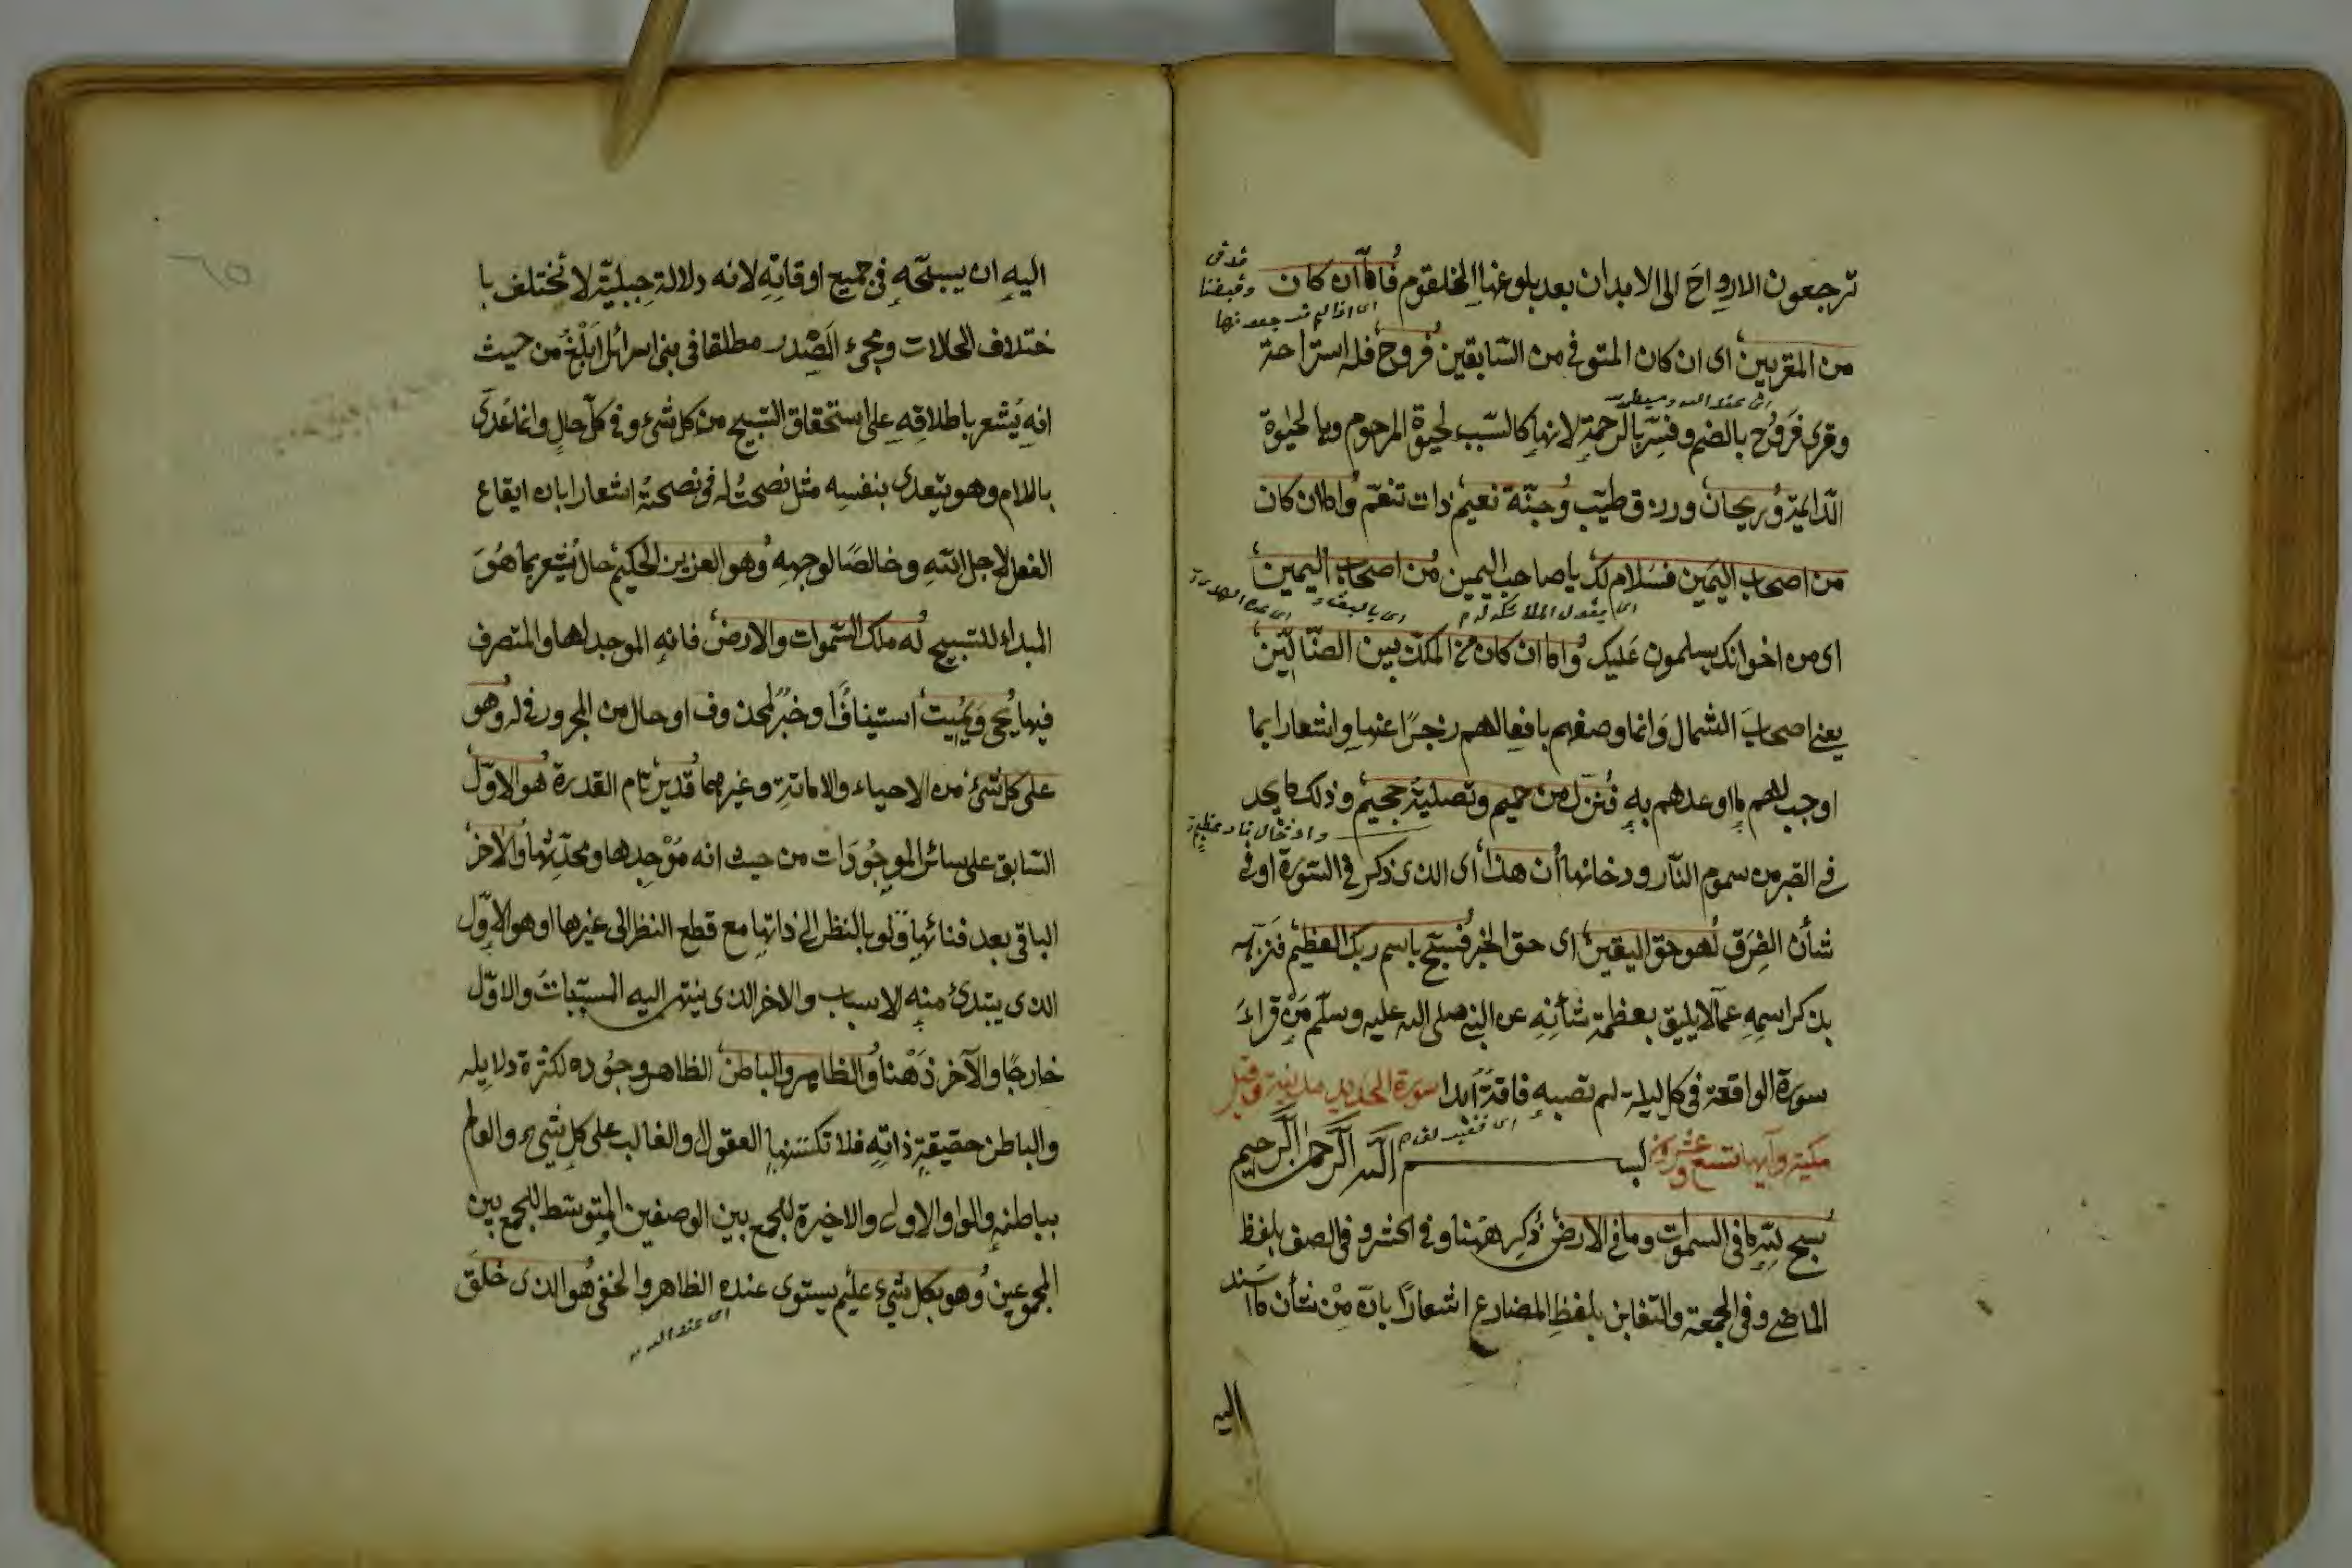 ترجعون الارواح الى الابدان بعد بلوغها الحلقوم فاما ان كان
من المقربين اى ان كان المتوفى من السابقين فروح فله استراحة
وقرئ فروح بالضم وفسر بالرحمة لانها كالسبب لحيوة المرحوم وبالحيوة
الدائمة وريحان ورزق طيب وجنة نعيم ذات تنعم واما ان كان
من اصحاب اليمين فسلام لك يا صاحب اليمين من اصحاب اليمين
اى من اخوانك يسلمون عليك واما ان كان من المكذبين الضالين
يعنى اصحاب الشمال وانما وصفهم بافعالهم زجرا عنها واشعارا بما
اوجب لهم ما اوعدهم به فنزل من حميم وتصلية جحيم وذلك ما يجد
فى القبر من سموم النار ودخانها ان هذا اى الذى ذكر فى السورة او فى
شأن الفرق لهو حق اليقين اى حق الخبر فسبح باسم ربك العظيم فنزهه
بذكر اسمه عما لا يليق بعظمة شأنه عن النبى صلى الله عليه وسلم من قراء
سورة الواقعة فى كل ليلة لم تصبه فاقة ابدا سورة الحديد مدنية وقيل
مكية وآيها تسع وعشرون بسم الله الرحمن الرحيم
سبح لله ما فى السموات وما فى الارض ذكر ههنا وفى الحشر وفى الصف بلفظ
الماضى وفى الجمعة والتغابن بلفظ المضارع اشعارا بان من شأن ما اسند
اليه
اليه ان يسبحه فى جميع اوقاته لانه دلالة جبلية لا تختلف با
ختلاف الحالات ومجىء المصدر مطلقا فى بنى اسرائل ابلغ من حيث
انه يشعر باطلاقه على استحقاق التسبيح من كل شىء وفى كل حال وانما عدى
باللام وهو يتعدى بنفسه مثل نصحت له فى نصحته اشعارا بان ايقاع
الفعل لاجل الله وخالصا لوجهه وهو العزيز الحكيم حال يشعر بما هو
المبداء للتسبيح له ملك السموات والارض فانه الموجد لها والمتصرف
فيها يحيى ويميت استيناف او خبر لمحذوف او حال من المجرور فى له وهو
على كل شىء من الاحياء والاماتة وغيرهما قدير تام القدرة هو الاول
السابق على سائر الموجودات من حيث انه موجدها ومحدثها والآخر
الباقى بعد فنائها ولو بالنظر الى ذاتها مع قطع النظر الى غيرها او هو الاول
الذى يبتدئ منه الاسباب والاخر الذى ينتهى اليه المسببات والاول
خارجا والآخر ذهنا والظاهر والباطن الظاهر وجوده لكثرة دلايله
والباطن حقيقة ذاته فلا تكتنهها العقول والغالب على كل شىء والعالم
بباطنه والواو الاولى والاخيرة للجمع بين الوصفين المتوسط للجمع بين
المجموعين وهو بكل شىء عليم يستوى عنده الظاهر والخفى هو الذى خلق
اى عند الله